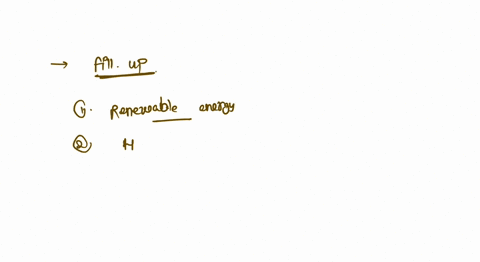 → Fill. up.
①. Renewable energy
②, H